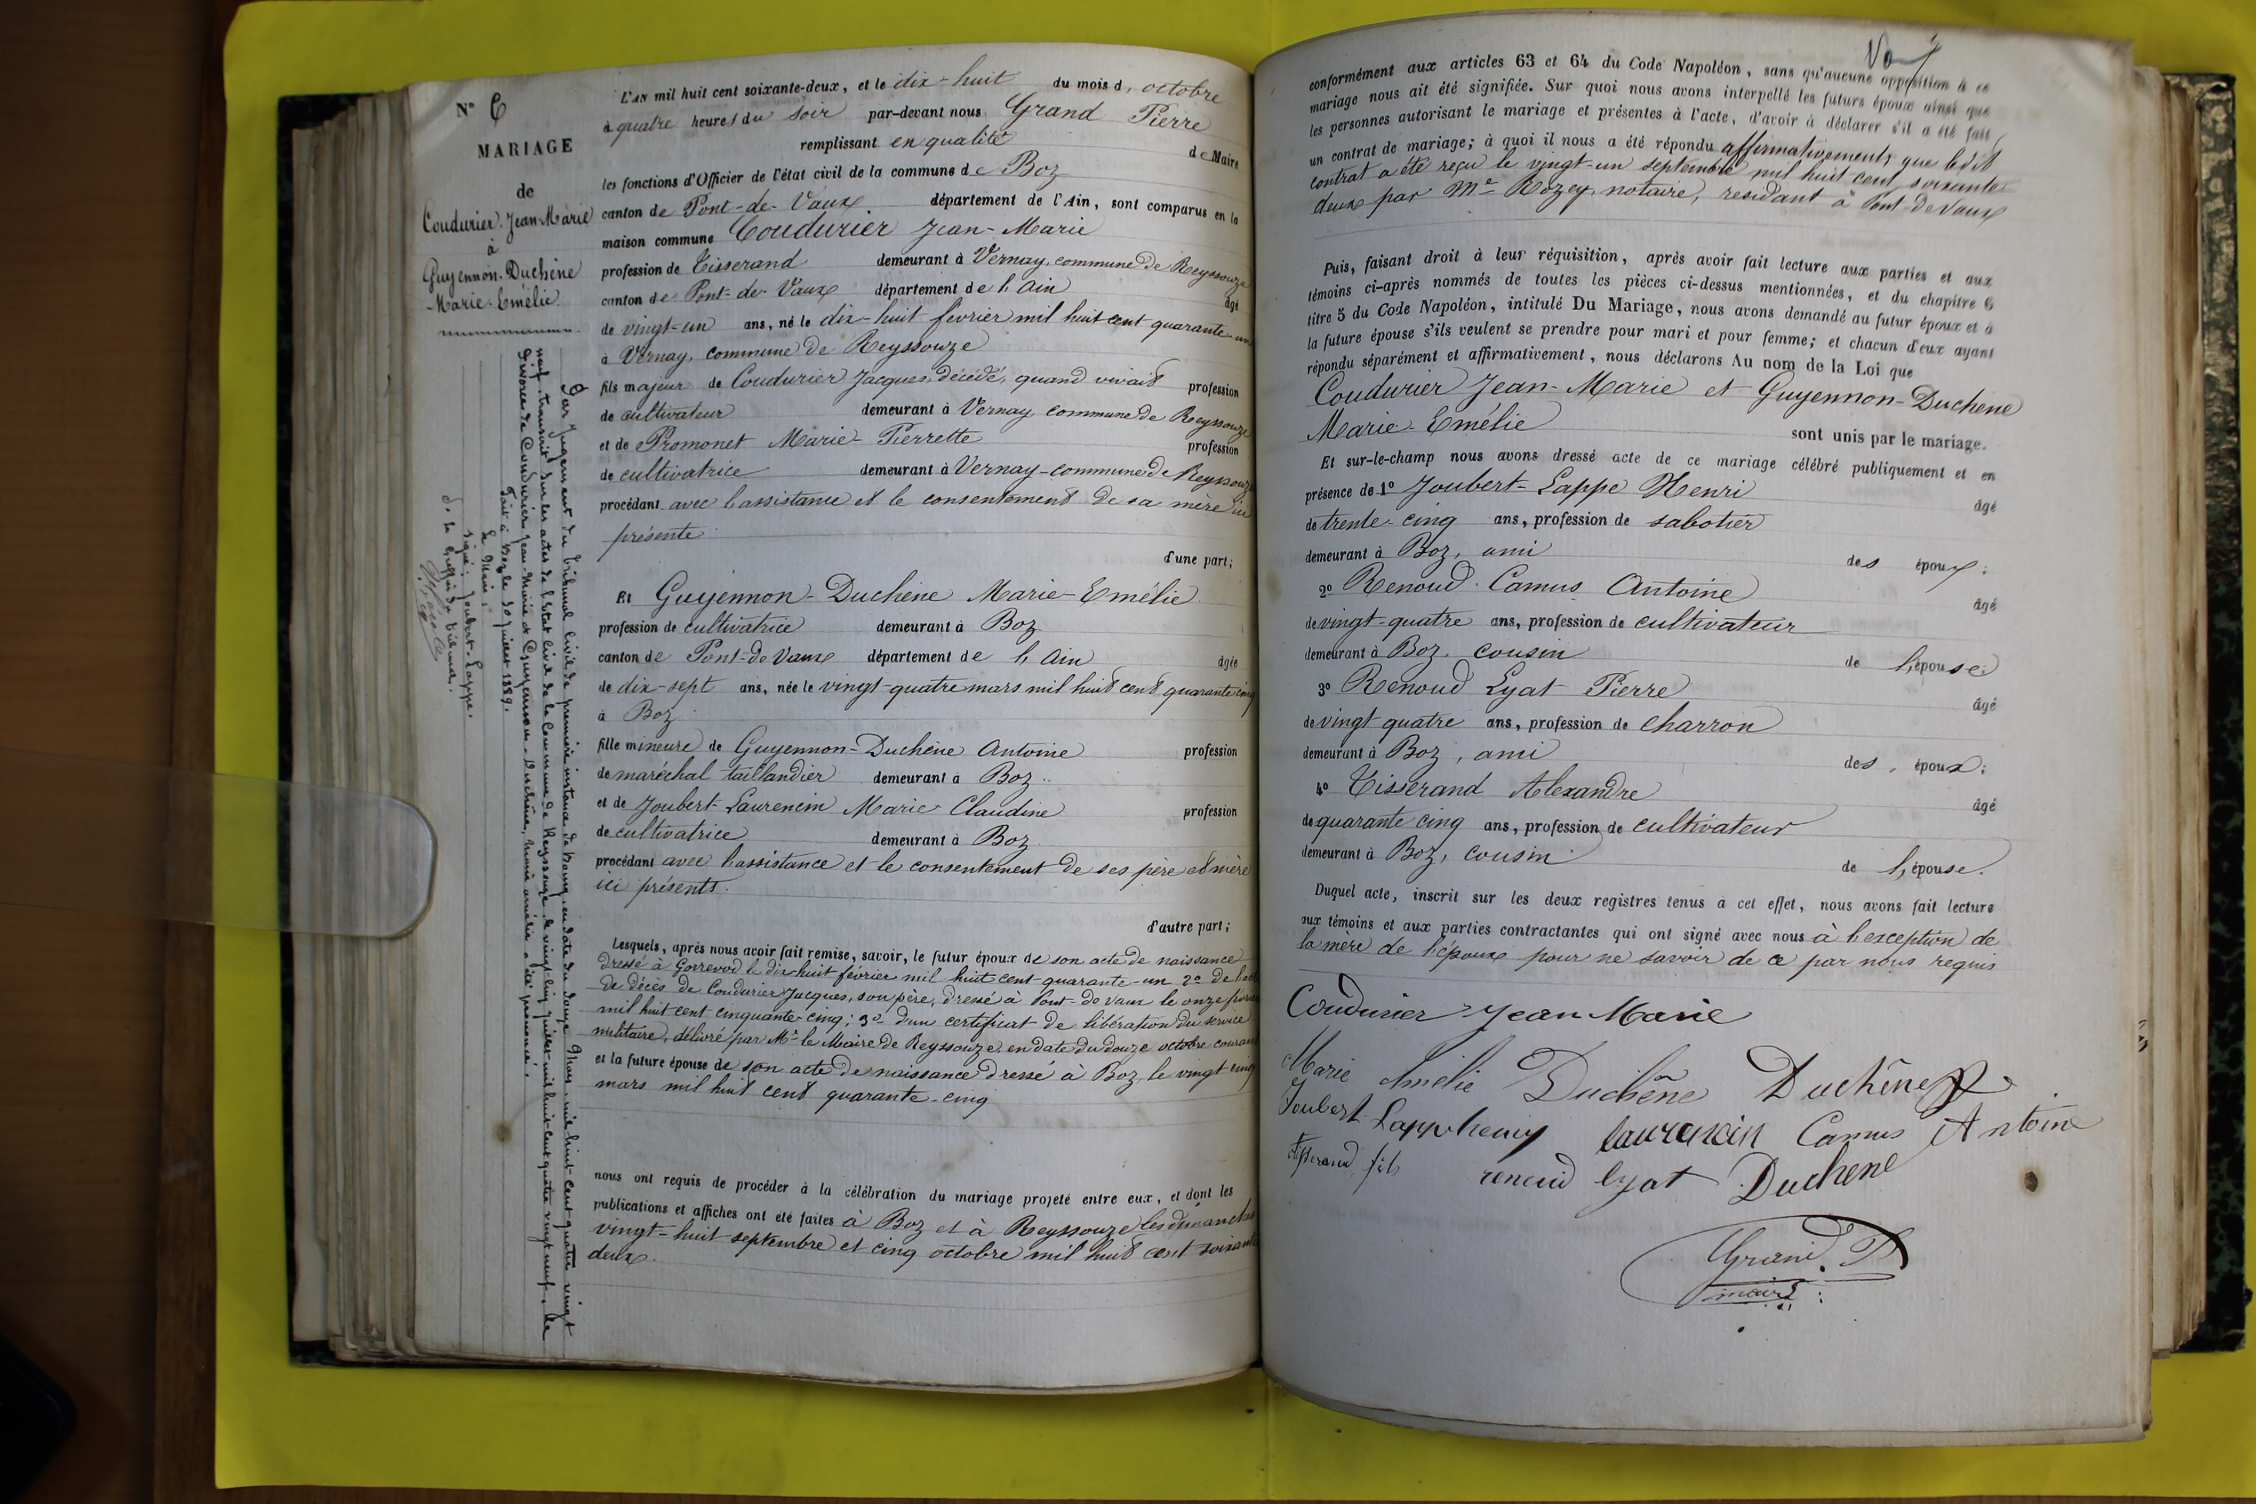 N° 6
MARIAGE
de
Coudurier Jean-Marie
à
Guyennon-Duchêne
Marie-Emélie.
Par jugement du tribunal civil de première instance de Bourg, en date du douze Mars, mil huit cent quatre vingt
neuf, transcrit sur les actes de l'Etat civil de la Commune de Reyssouze le vingt-cinq juillet mil huit-cent quatre vingt neuf, le
divorce de Coudurier Jean-Marie et Guyennon-Duchêne, Marie amélie a été prononcé.
Fait à Boz, le 30 juillet 1889.
Le Maire,
signé: Joubert-Lappe.
L'AN mil huit cent soixante-deux, et le dix-huit du mois d, octobre
à quatre heures du soir par-devant nous Grand Pierre
remplissant en qualité de Maire
les fonctions d'Officier de l'état civil de la commune de Boz
canton de Pont-de-Vaux département de l'Ain, sont comparus en la
maison commune Coudurier Jean-Marie
profession de Tisserand demeurant à Vernay, commune de Reyssouze
canton de Pont-de-Vaux département de l, Ain âgé
de vingt-un ans, né le dix-huit février mil huit cent quarante-un
à Vernay, commune de Reyssouze
fils majeur de Coudurier Jacques, décédé, quand vivait profession
de cultivateur demeurant à Vernay commune de Reyssouze
et de Promonet Marie-Pierrette profession
de cultivatrice demeurant à Vernay-commune de Reyssouze
procédant avec l'assistance et le consentement de sa mère ici
présente
d'une part;
Et Guyennon-Duchêne Marie-Emélie
profession de cultivatrice demeurant à Boz
canton de Pont-de-Vaux département de l, Ain âgée
de dix-sept ans, née le vingt-quatre mars mil huit cent quarante cinq
à Boz
fille mineure de Guyennon-Duchêne Antoine profession
de maréchal taillandier demeurant à Boz
et de Joubert-Laurencin Marie Claudine profession
de cultivatrice demeurant à Boz
procédant avec l'assistance et le consentement de ses père et mère
ici présents.
d'autre part;
Lesquels, après nous avoir fait remise, savoir, le futur époux de son acte de naissance
dressé à Gorrevod le dix-huit février mil huit cent quarante-un 2° de l'acte
de décès de Coudurier Jacques, son père, dressé à Pont-de-Vaux le onze
mil huit cent cinquante-cinq; 3° d'un certificat de libération du service
militaire, délivré par Mr le Maire de Reyssouze, en date du douze octobre courant
et la future épouse de son acte de naissance dressé à Boz, le vingt cinq
mars mil huit cent quarante-cinq
nous ont requis de procéder à la célébration du mariage projeté entre eux, et dont les
publications et affiches ont été faites à Boz et à Reyssouze les dimanches
vingt-huit septembre et cinq octobre mil huit cent soixante
deux.
conformément aux articles 63 et 64 du Code Napoléon, sans qu'aucune opposition à ce
mariage nous ait été signifiée. Sur quoi nous avons interpellé les futurs époux ainsi que
les personnes autorisant le mariage et présentes à l'acte, d'avoir à déclarer s'il a été fait
un contrat de mariage; à quoi il nous a été répondu affirmativement, que ledit
contrat a été reçu le vingt-un septembre mil huit cent soixante
deux par Me Rozey, notaire, résidant à Pont-de-Vaux
Puis, faisant droit à leur réquisition, après avoir fait lecture aux parties et aux
témoins ci-après nommés de toutes les pièces ci-dessus mentionnées, et du chapitre 6
titre 5 du Code Napoléon, intitulé Du Mariage, nous avons demandé au futur époux et à
la future épouse s'ils veulent se prendre pour mari et pour femme; et chacun d'eux ayant
répondu séparément et affirmativement, nous déclarons Au nom de la Loi que
Coudurier Jean-Marie et Guyennon-Duchene
Marie-Emélie sont unis par le mariage.
Et sur-le-champ nous avons dressé acte de ce mariage célébré publiquement et en
présence de 1° Joubert-Lappe Henri âgé
de trente-cinq ans, profession de sabotier
demeurant à Boz, ami des époux;
2° Renoud-Camus Antoine âgé
de vingt-quatre ans, profession de cultivateur
demeurant à Boz, cousin de l, épouse;
3° Renoud Lyat Pierre âgé
de vingt quatre ans, profession de charron
demeurant à Boz, ami des, époux;
4° Tisserand Alexandre âgé
de quarante cinq ans, profession de cultivateur
demeurant à Boz, cousin de l, épouse.
Duquel acte, inscrit sur les deux registres tenus à cet effet, nous avons fait lecture
aux témoins et aux parties contractantes qui ont signé avec nous à l'exception de
la mère de l'époux pour ne savoir de ce par nous requis
Coudurier Jean Marie
Marie Amélie Duchêne Duchêne
Joubert Lappe henry laurencin Camus Antoine
tisserand fils renoud lyat Duchene
Grand P
maire